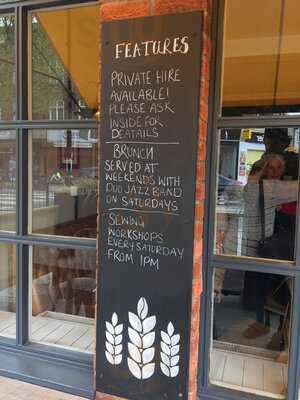 FEATURES
PRIVATE HIRE
AVAILABLE!
PLEASE ASK
INSIDE FOR
DEATAILS
BRUNCH
SERVED AT
WEEKENDS WITH
DUO JAZZ BAND
ON SATURDAYS
SEWING
WORKSHOPS
EVERY SATURDAY
FROM 1PM